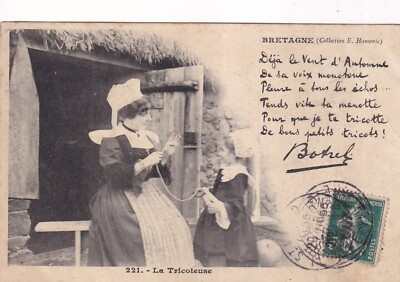 BRETAGNE (Collection E. Hamonic)
Déjà le Vent d'Automne
De sa voix monotone
Pleure à tous les échos...
Tends vite ta menotte
Pour que je te tricotte
De bons petits tricots !
Botrel
POSTES
221. - La Tricoteuse